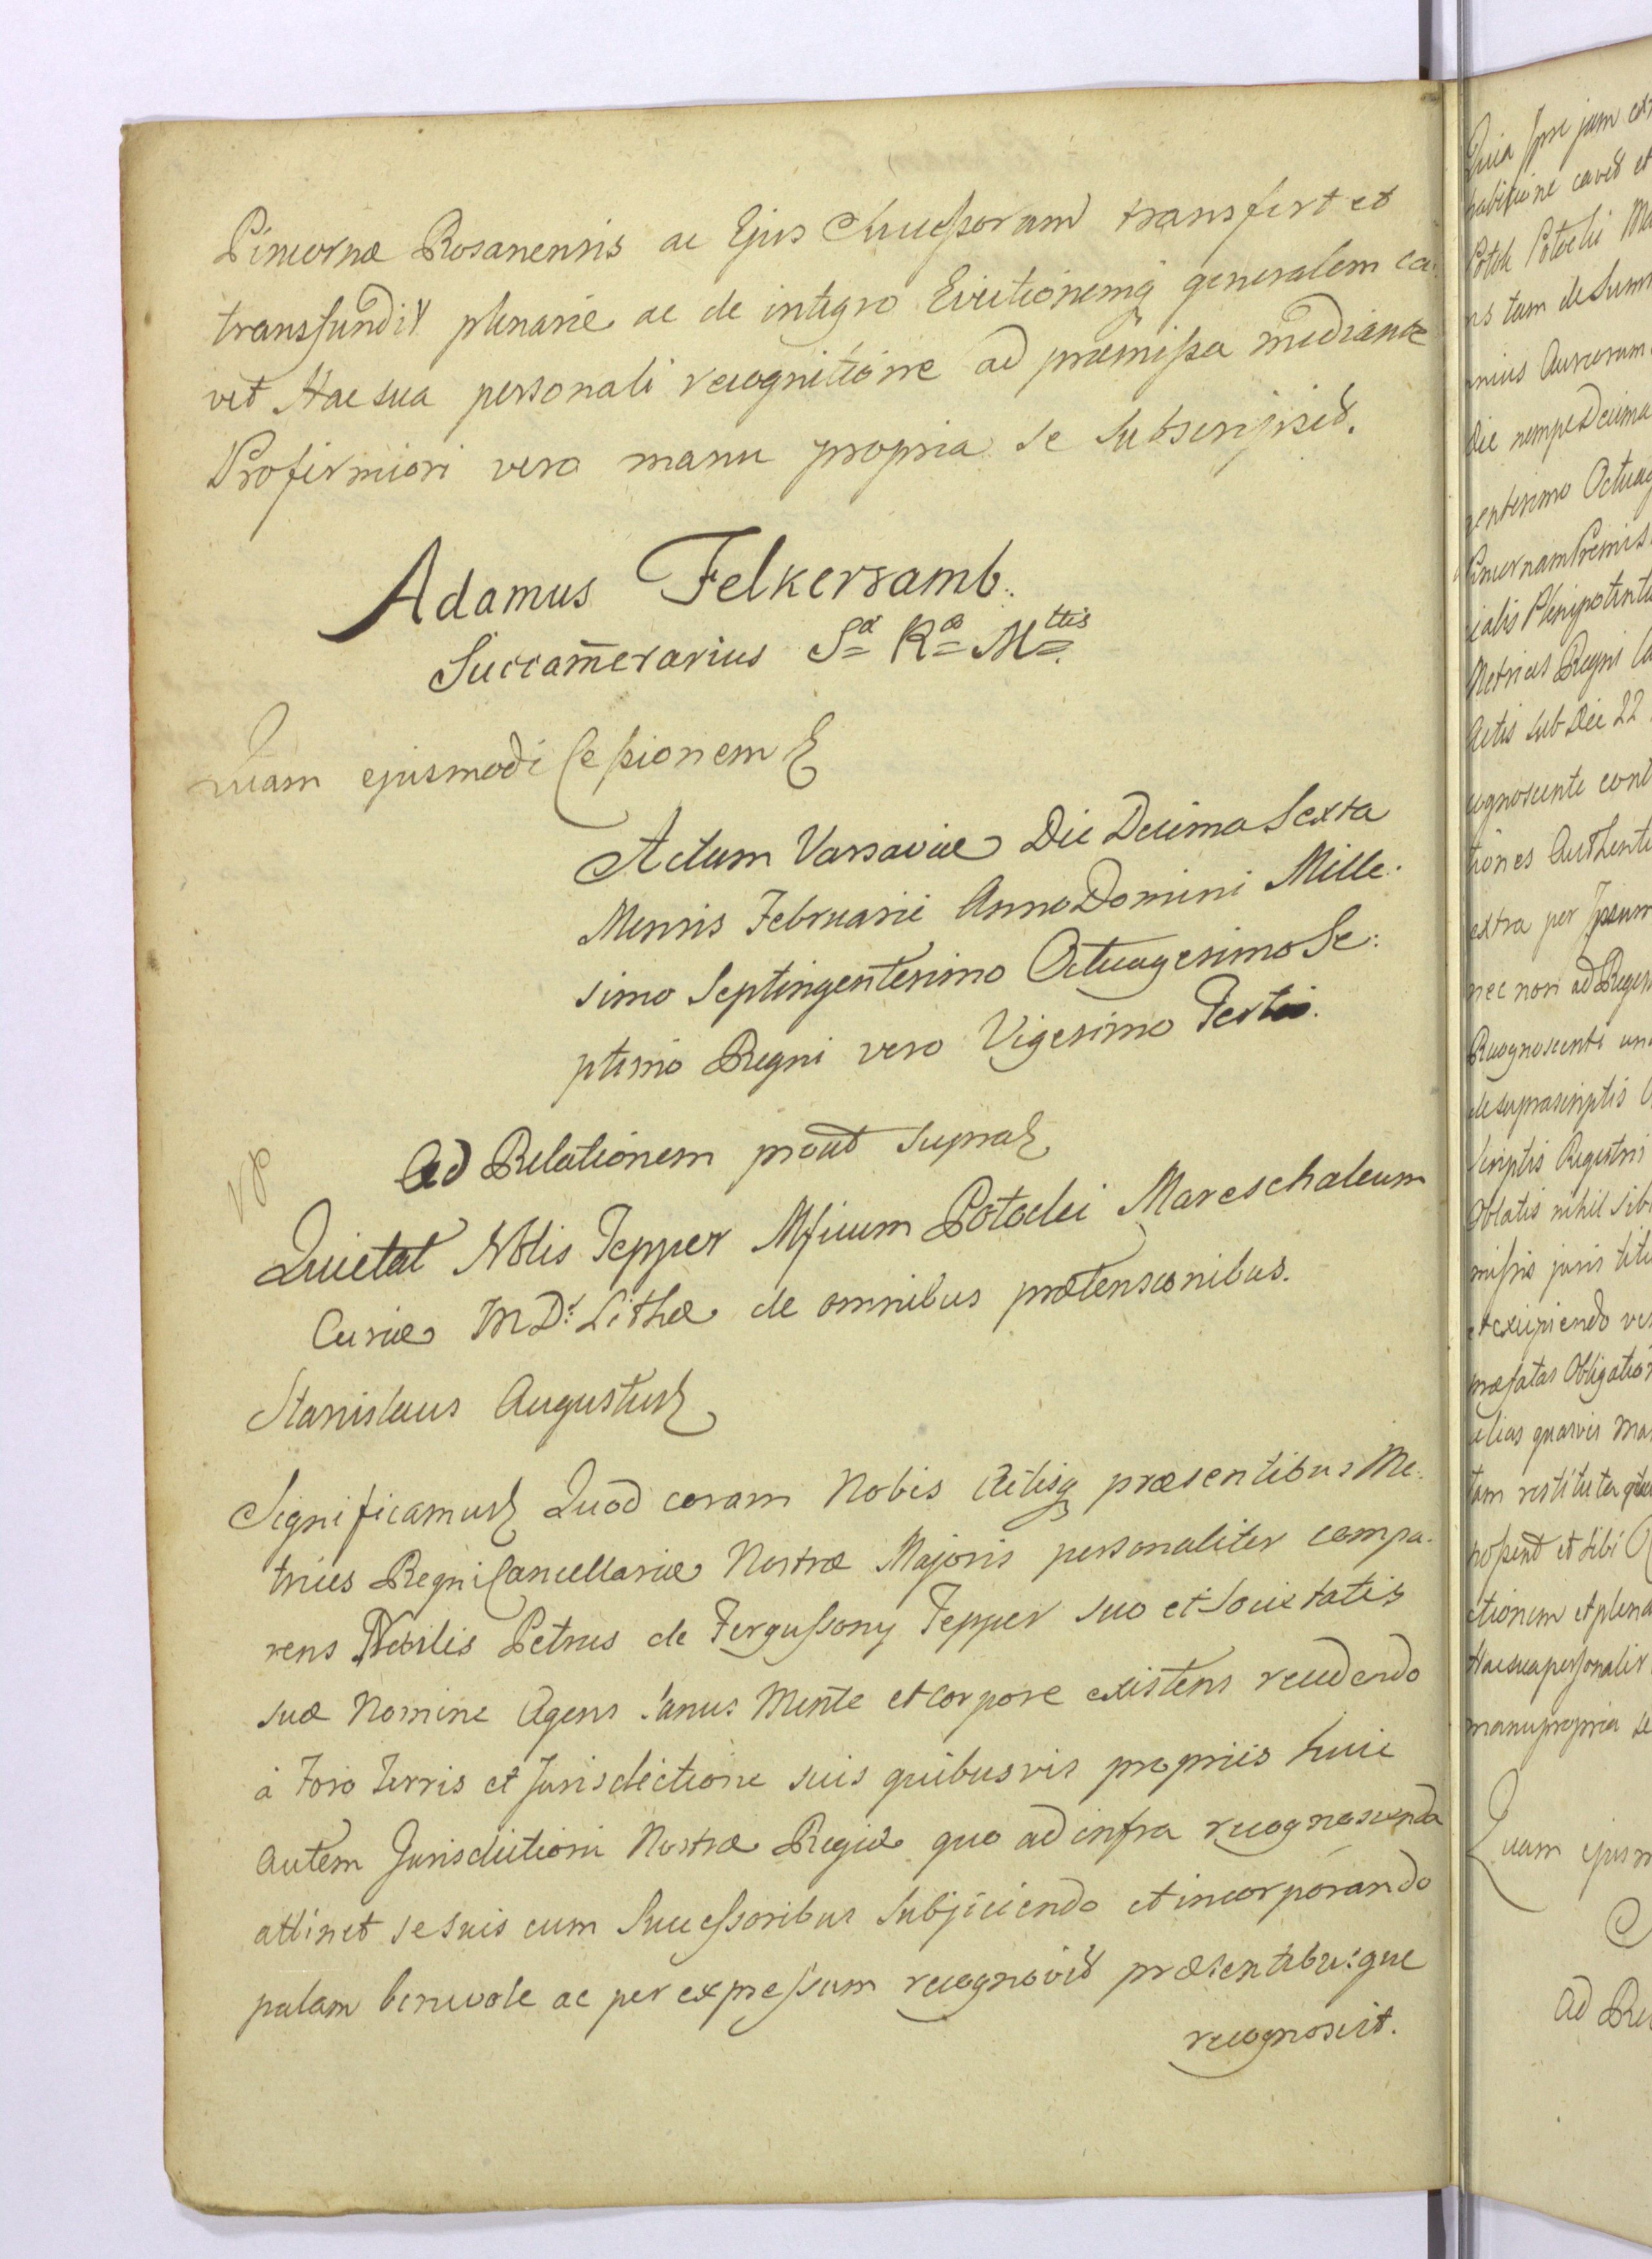 Pincernæ Rosanensis ac Ejus Successorum transfert et
transfundit plenarie ac de integro Evictionemq generalem ca:
vet Hac sua personali recognitione ad præmissa mediante
Pro firmiori vero manu propria se subscripsit.
Adamus Felkersamb.
Succamerarius Sæ Ræ Mttis
Quam ejusmodi Cessionem
Actum Varsaviæ Die Decima Sexta
Mensis Februarii Anno Domini Mille:
simo Septingentesimo Octuagesimo Se:
ptimo Regni vero Vigesimo Tertio.
Ad Relationem prout supra
VP
Quietat Nblis Tepper Mficum Potocki Mareschalcum
Curiæ M D: Lithæ de omnibus prætensionibus.
Stanislaus Augustus
Significamus Quod coram Nobis Actisq præsentibus Me:
trices Regni Cancellariæ Nostræ Majoris personaliter compa:
rens Nobilis Petrus de Fergussony Tepper suo et Societatis
suæ Nomine Agens sanus Mente et Corpore existens recedendo
à Foro Terris et Jurisdictione suis quibusvis propriis huic
autem Jurisdictioni Nostræ Regiæ quo ad infra recognoscenda
attinet se suis cum Successoribus subjiciendo et incorporando
palam benevole ac per expressum recognovit præsentibusque
recognoscit.
Quia Ipse jam
Potok Potocki
ns tam de Sum
Die nempe Decima
gentesimo Octuag
ialis Plenipotent
Metrices Regni
Actis sub Die 22
cognoscente cont
tiones Authenti
extra per Ipsum
nec non ad Regest
Recognoscenti
de suprascriptis
scriptis Regestris
Oblatis nihil sibi
missis juris
et excipiendo
præfatas Obligation
alias quasvis
possent et sibi
ctionem et plena
Hac sua personali
manu propria se
Quam ejusm
Ad Re